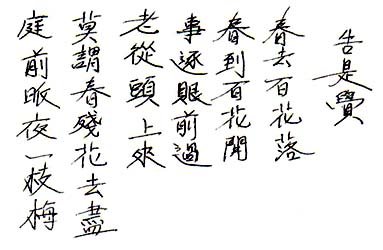 告是
春去百花落
春到百花開
事逐眼前過
老從頭上來
莫謂春殘花去盡
庭前昨夜一枝梅